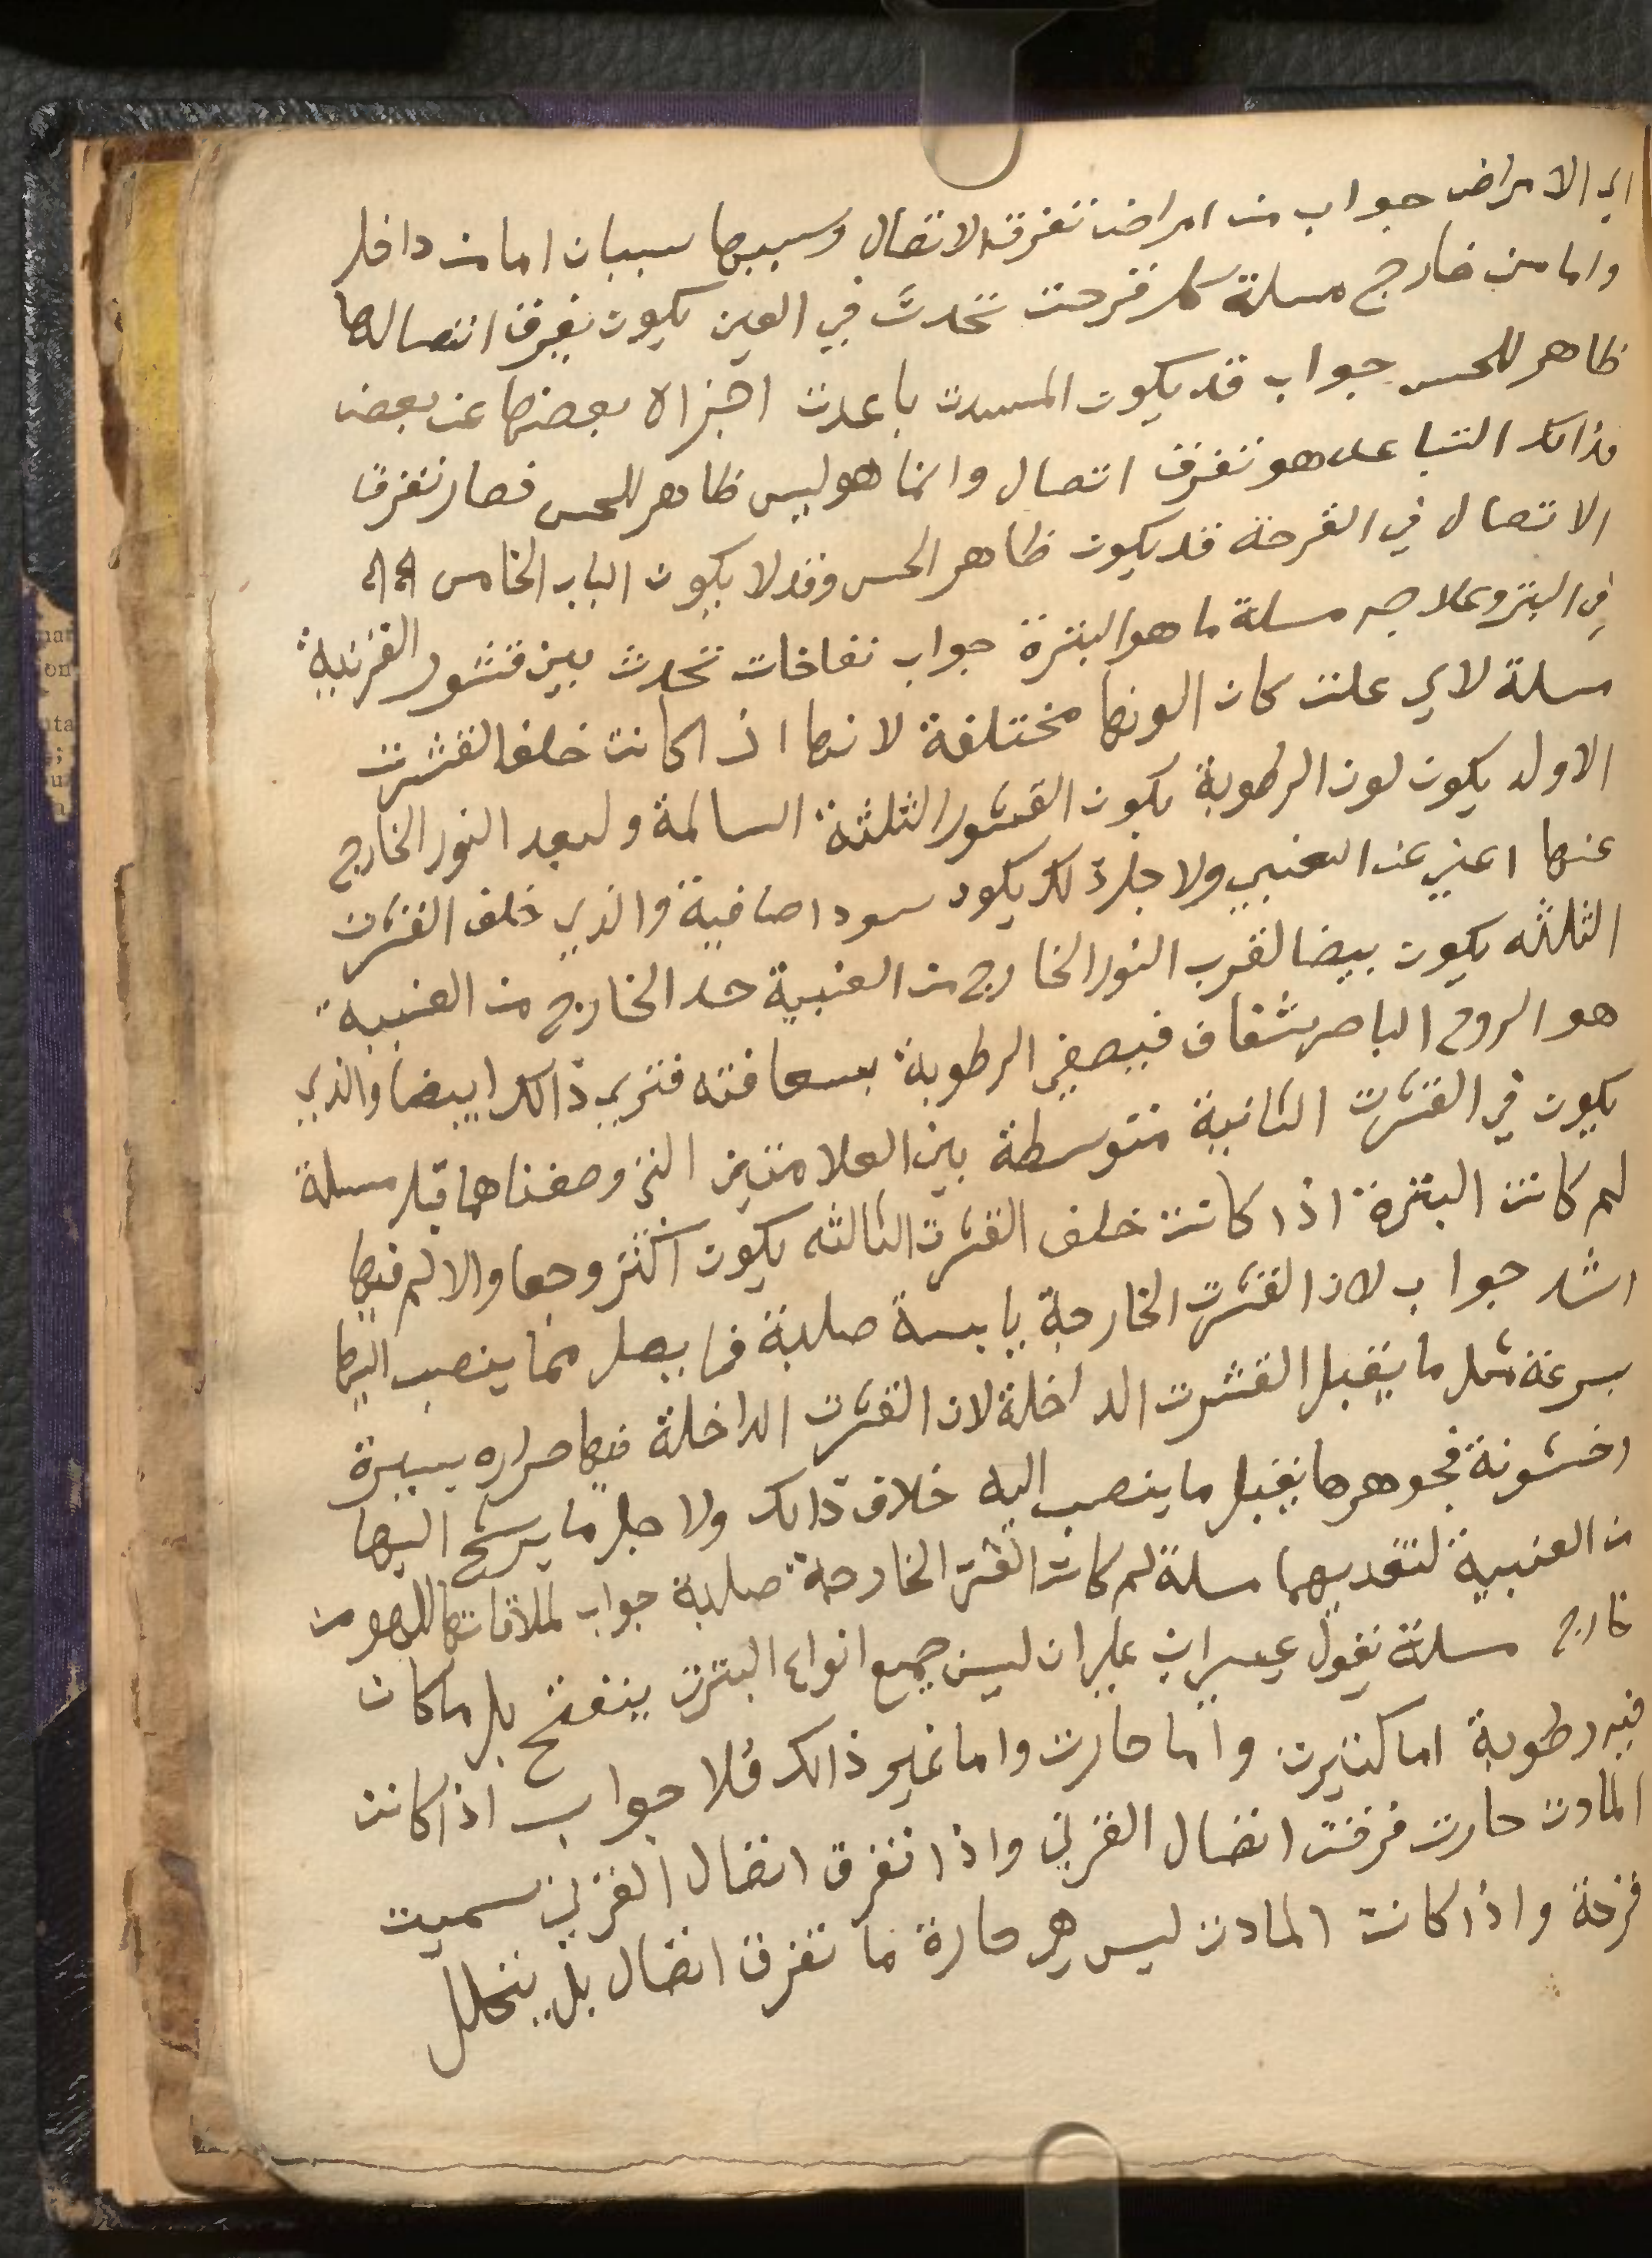 اي الامراض جواب من امراض تفرق الاتصال وسببها سببان اما من داخل
واما من خارج مسلة كل قرحت تحدث في العين يكون تفرق اتصالها
ظاهر للحس جواب قد يكون باعدت اجزاه بعضها عن بعض
وذالك التباعد هو تفرق اتصال وانما هو ليس ظاهر للحس فصار تفرق
الاتصال في القرحة قد يكون ظاهر الحس وقد لا يكون الباب الخامس
في البثر وعلاجه مسلة ما هو البثرة جواب نفاخات تحدث بين قشور القرنية
مسلة لاي علت كان الونها مختلفة لانها اذا كانت خلف القشرت
الاوله يكون لون الرطوبة يكون القشور الثلثة السالمة ولبعد النور الخارج
عنها اعني عن العنبي ولاجل ذلك يكون سودا صافية والذي خلف القشرت
الثلثه يكون بيضا لقرب النور الخارج من العنبية حد الخارج من العنبيه
هو الروح الباصر شفاف فيصفي الرطوبة فتري ذالك ابيضا والذي
يكون في القشرت الثانية متوسطة بين العلامتين الذي وصفناهما قبل مسلة
لم كانت البثرة اذا كانت خلف القشرت الثالثه يكون اكثر وجعا والالم فيها
اشد جواب لان القشرت الخارجة يابسة صلبة فما يصل مما ينصب اليها
بسرعة مثل ما يقبل القشرت الداخلة لان القشرت الداخلة فيها حراره يسيرة
وخشونة فجوهرها يقبل ما ينصب اليه خلاف ذالك ولاجل ما يرشح اليها
من العنبية مسلة لم كانت القشرة الخارجة صلبة جواب لملاقاتها للهو من
خارج مسلة نقول علي ان ليس جميع انواع البثرت ينفتح بل ما كان
فيه رطوبة اما كثيرت واما حارت واما غير ذالك فلا جواب اذا كانت
المادت حارت فرقت اتصال القرني واذا تفرق اتصال القرني سميت
قرحة واذا كانت المادت ليس هي حارة ما تفرق اتصال بل يتحلل